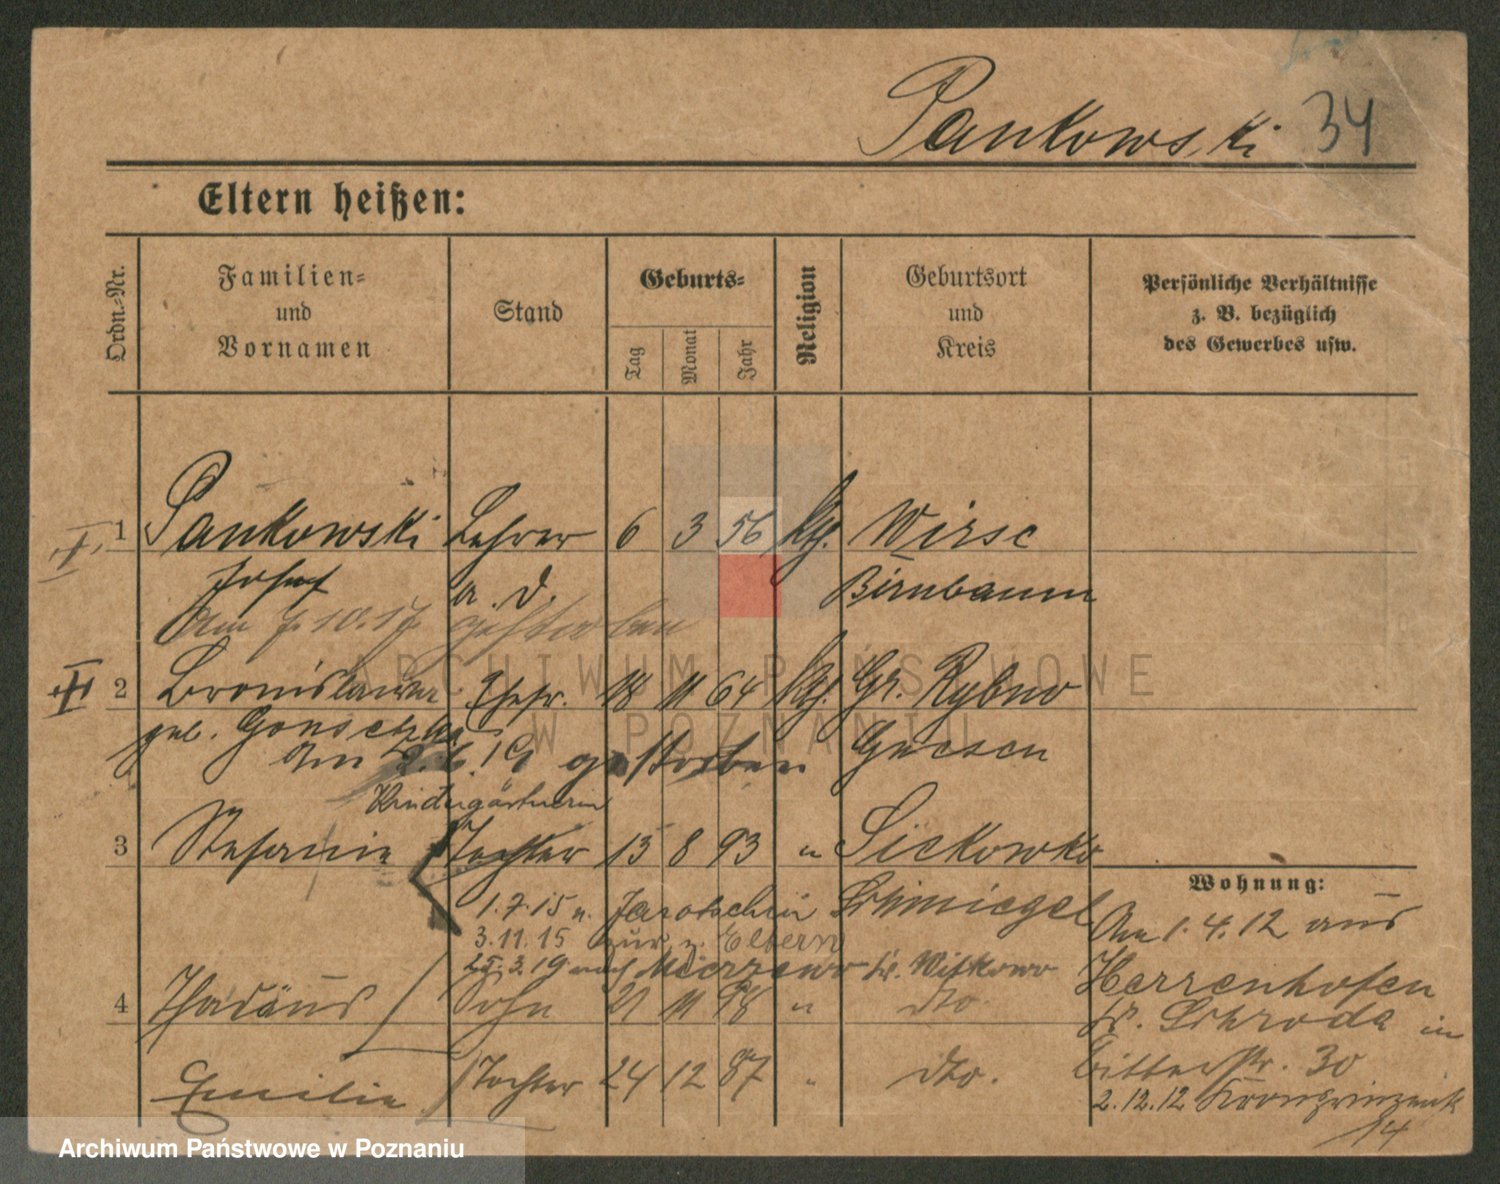 Pankowski 34
Eltern heißen:
Ordn.-Nr.
Familien-
und
Vornamen
Stand
Geburts-
Tag
Monat
Jahr
Religion
Geburtsort
und
Kreis
Persönliche Verhältnisse
z. B. bezüglich
des Gewerbes usw.
1 Pankowski Lehrer 6 3 56 kth. Wirse
Josef a. D. Birnbaum
Am 7.10.17 gestorben
2 Bronislawa Ehefr. 18 11 64 kth. Gr. Rybno
geb. Gnesen
Am 2.6.19 gestorben
Kindergärtnerin
3 Stefanie Tochter 13 8 93 " Sickowko
Wohnung:
1.7.15 n. Jarotschin Schmiegel
3.11.15 zur. z. Eltern
25.3.19 nach Mierzewo Kr. Witkowo
4 Thadäus Sohn 21 11 98 " dto.
Emilie Tochter 24 12 87 " dto.
Am 1.4.12 aus
Herrenhofen
Kr. Schroda in
Bitterstr. 30
2.12.12 Kronprinzenstr.
14
ARCHIWUM PAŃSTWOWE
W POZNANIU
Archiwum Państwowe w Poznaniu